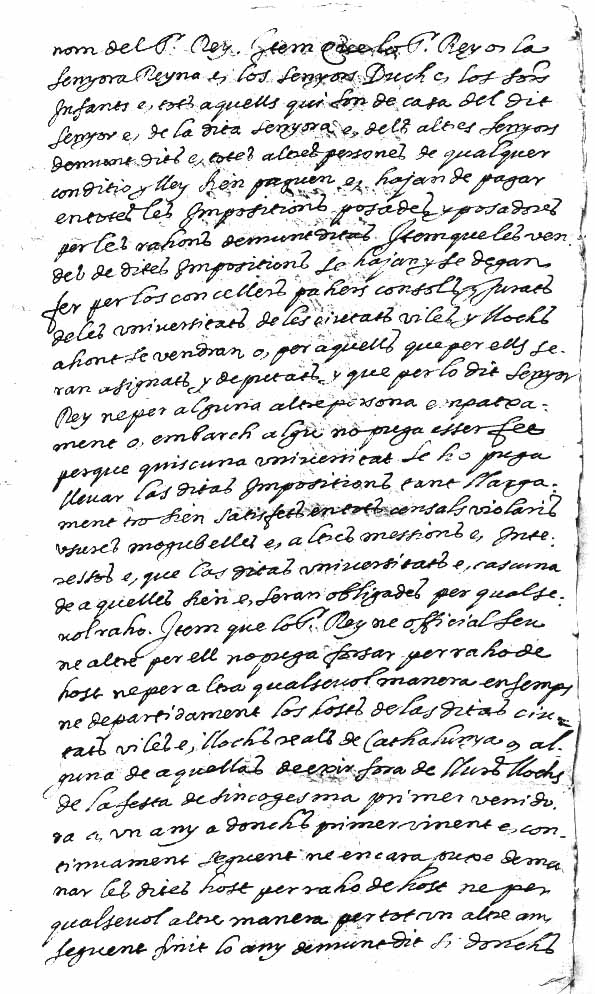 nom del Sr. Rey. Item que lo Sr. Rey o, la
senyora Reyna e, los senyors Duch e, los sors
Infants e, tots aquells qui son de casa del dit
senyor e, de la dita senyora e, dels altres senyors
demunt dits e, totes altres persones de qualquer
conditio y lley sien paguen e, hajan de pagar
en totes les Impositions posades, y posadores
per les rahons demunt ditas. Item que les ven
des de dites Impositions se hajan y se degan
fer per los concellers pahers consols, y Jurats
de les vniversitats de les ciutats viles, y llochs
ahont se vendran o, per aquells que per ells se-
ran asignats, y deputats, y que per lo dit senyor
Rey ne per alguna altre persona enpatxa-
ment o, embarch algu no puga esser fet
perque quiscuna vniversitat se ho puga
llevar las ditas Impositions tant llarga-
ment tro sien satisfets en tots censals violaris
vsures mogubelles e, altres messions e, Inte-
ressos e, que las ditas vniversitats e, cascuna
de aquelles sien e, seran obligades per qualse-
vol raho. Item que lo Sr. Rey ne official seu
ne altre per ell no puga forsar per raho de
host ne per altra qualsevol manera ensemps
ne departidament los hosts de las ditas ciu-
tats viles e, llochs reals de Cathalunya o, al-
guna de aquellas de exir fora de llurs llochs
de la festa de sincogesma primer venido-
ra a, vn any adonchs primer vinent e, con-
tinuament seguent ne encara puxe dema
nar les dites host per raho de host ne per
qualsevol altre manera per tot vn altre any
seguent finit lo any demunt dit si donchs